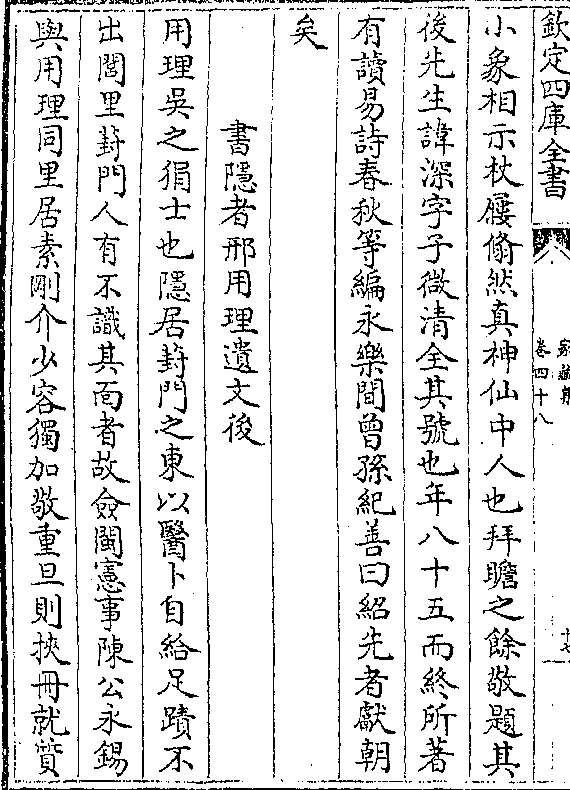 欽定四庫全書
家藏集
卷四十八
十七
小象相示杖屨翛然真神仙中人也拜瞻之餘敬題其
後先生諱深字子微清全其號也年八十五而終所著
有讀易詩春秋等編永樂間曾孫紀善曰紹先者獻朝
矣
書隱者邢用理遺文後
用理吳之狷士也隱居葑門之東以醫卜自給足蹟不
出閭里葑門人有不識其面者故僉閩憲事陳公永錫
與用理同里居素剛介少容獨加敬重旦則挾冊就質